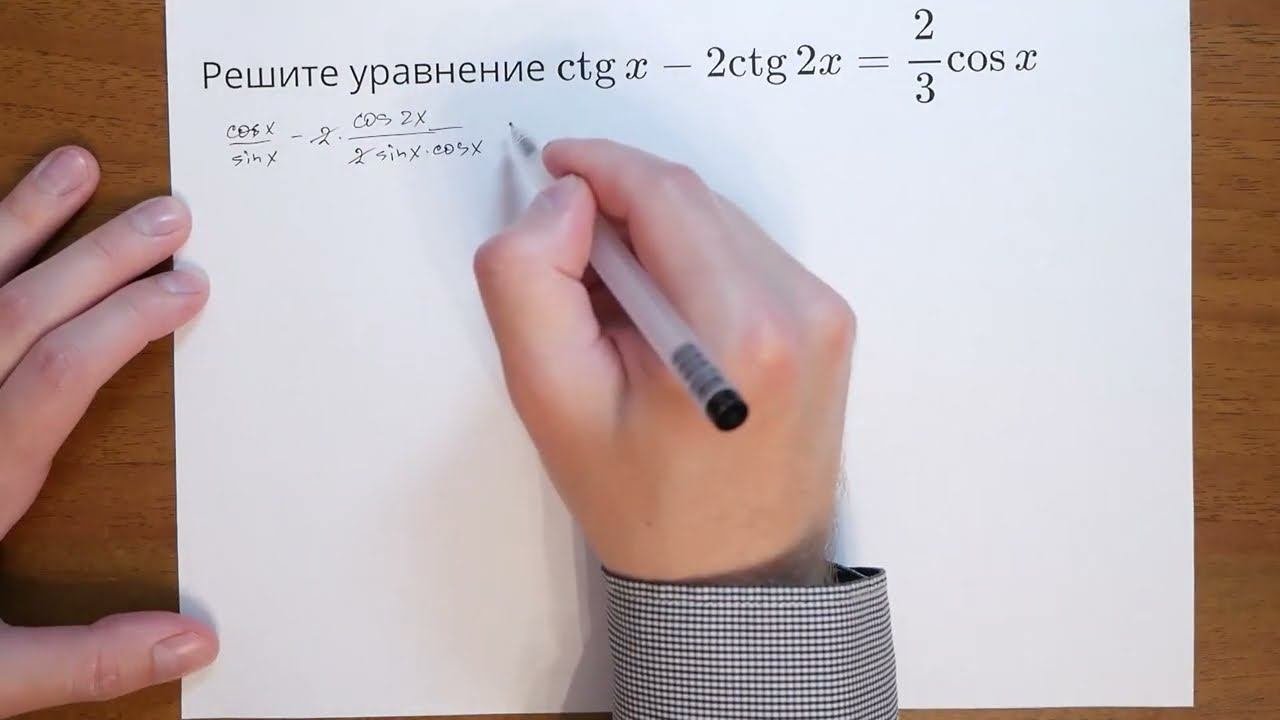 Решите уравнение ctg x − 2ctg 2x = 2/3 cos x
cos x / sin x − 2 · cos 2x / 2 sin x · cos x